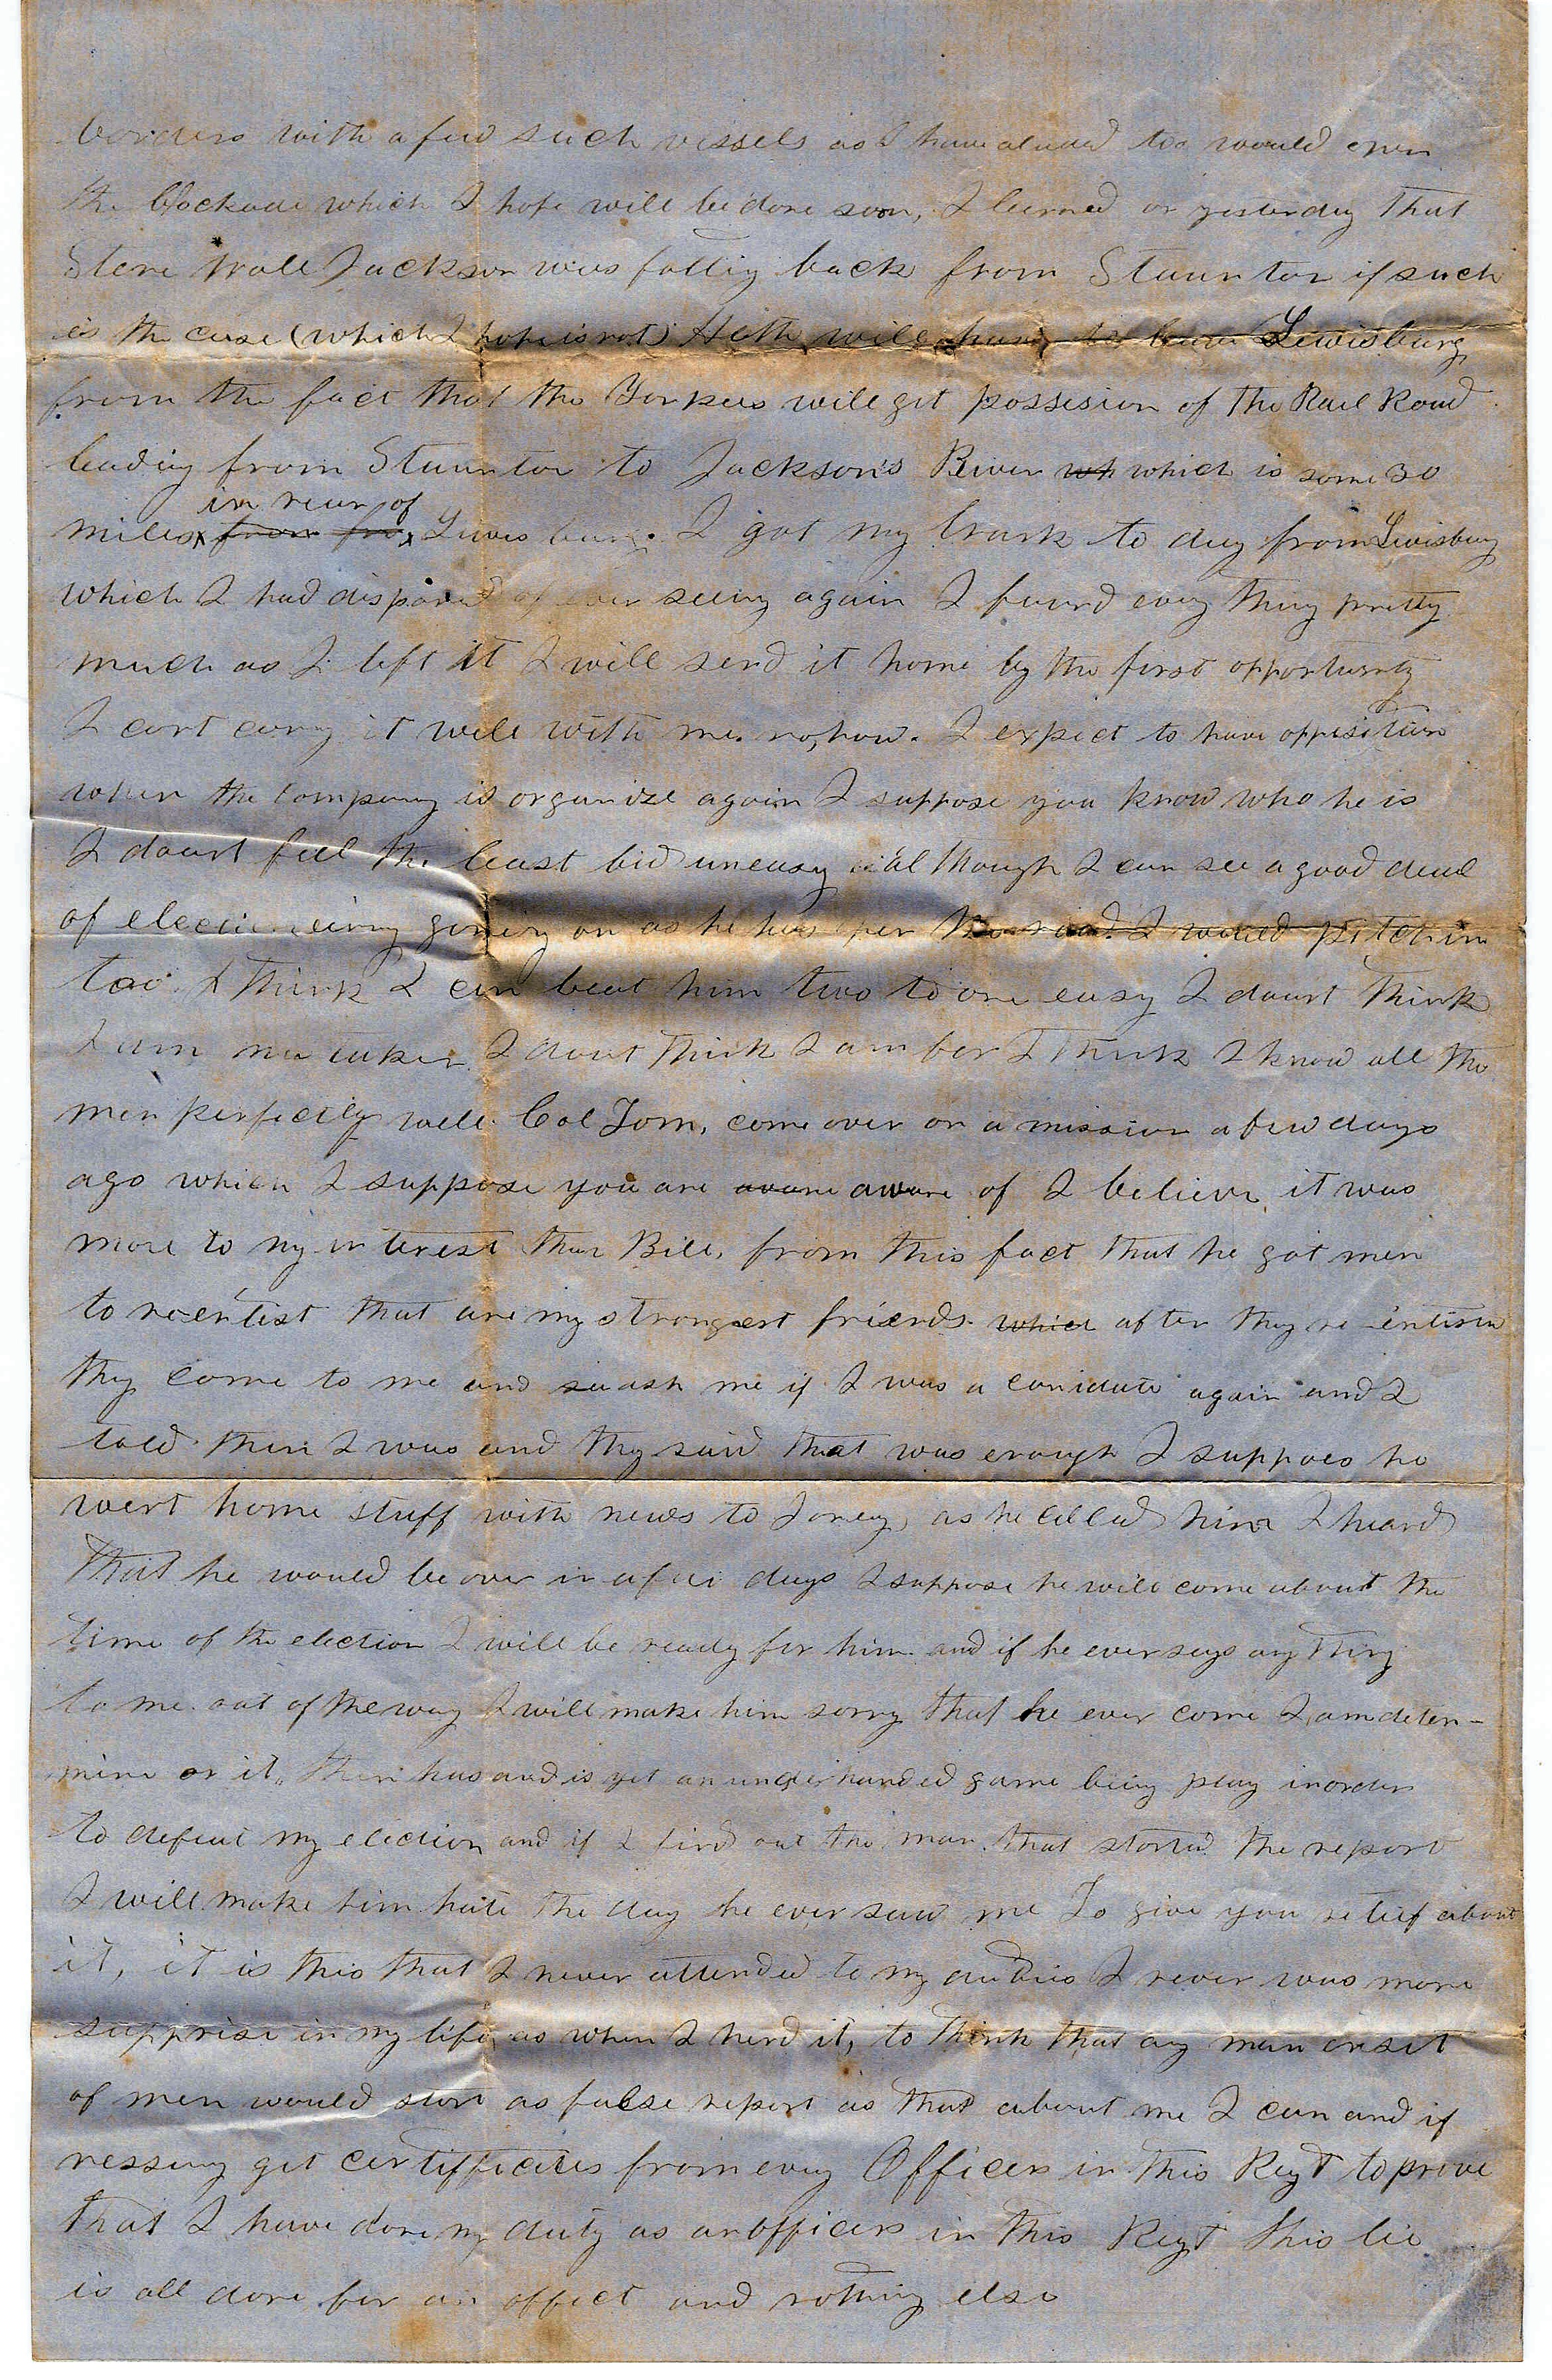 borders with a few such vessels as I have alread too would open
the blockade which I hope will be done soon, I learned on yesterday that
Stone Wall Jackson was falling back from Staunton if such
is the case (which I hope is not) Heth will have to leave Lewisburg
from the fact that the Yankees will get possision of the Rail Road
leading from Staunton to Jackson's River wh which is some 30
in rear of
miles from fro Lewisburg. I got my trunk to day from Lewisburg
which I had dispared of ever seeing again I found evry thing pretty
much as I left it I will send it home by the first opportunity
I cant cary it well with me no, how. I expect to have opposition
when the company is organize again I suppose you know who he is
I dount feel the least bid uneasy al though I can see a good deal
of electioneering going on as he has I would pitch in
too. I think I can beat him two to one easy I dount think
I am mistaken I dont think I am for I think I know all the
men perfectly well. Col Tom, come over on a mission a few days
ago which I suppose you are aware aware of I believe, it was
more to my interest than Bill, from this fact that he got men
to reenlist that are my strongest friends. which after they reenlisted
they come to me and ask me if I was a canidate again and I
told them I was and they said that was enough I suppoes he
went home stuff with news to Joney, as he called him I heard
that he would be over in a few days I suppose he will come about the
time of the election I will be ready for him and if he ever says any thing
to me. out of the way I will make him sorry that he ever come I am deter-
mine on it, their has and is yet an underhanded game being play inorder
to defeat my election and if I find out the man that started the report
I will make him hate the day he ever saw me To give you relief about
it, it is this that I never attended to my duties I never was more
supprise in my life, as when I herd it, to think that any man or set
of men would start as false report as that about me I can and if
nessary get certifficates from evry Officer in this Regt to prove
that I have done my duty as an officers in this Regt this lie
is all done for an effect and nothing else